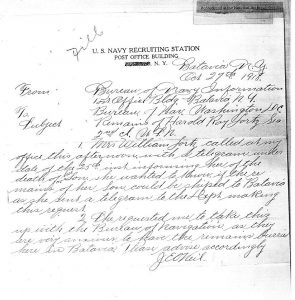 file
U. S. NAVY RECRUITING STATION
POST OFFICE BUILDING
N. Y.
Batavia N.Y.
Oct 27th 1918.
From Bureau of Navy Information
Post Office Bldg. Batavia N.Y.
To Bureau of Nav. Washington D.C.
Subject Remains of Harold Roy
2nd Cl. U.S.N.
1. Mrs William called at my
office this afternoon with a telegram under
date of the 25th inst informing her of the
death of son, she wanted to know if the re
mains of her son could be shipped to Batavia
as she sent a telegram to the Dept. making
this request
2. She requested me to take this
up with the Bureau of Navigation as they
are very anxious to have the remains buried
here in Batavia. Please advise accordingly
J. E. O'Neil